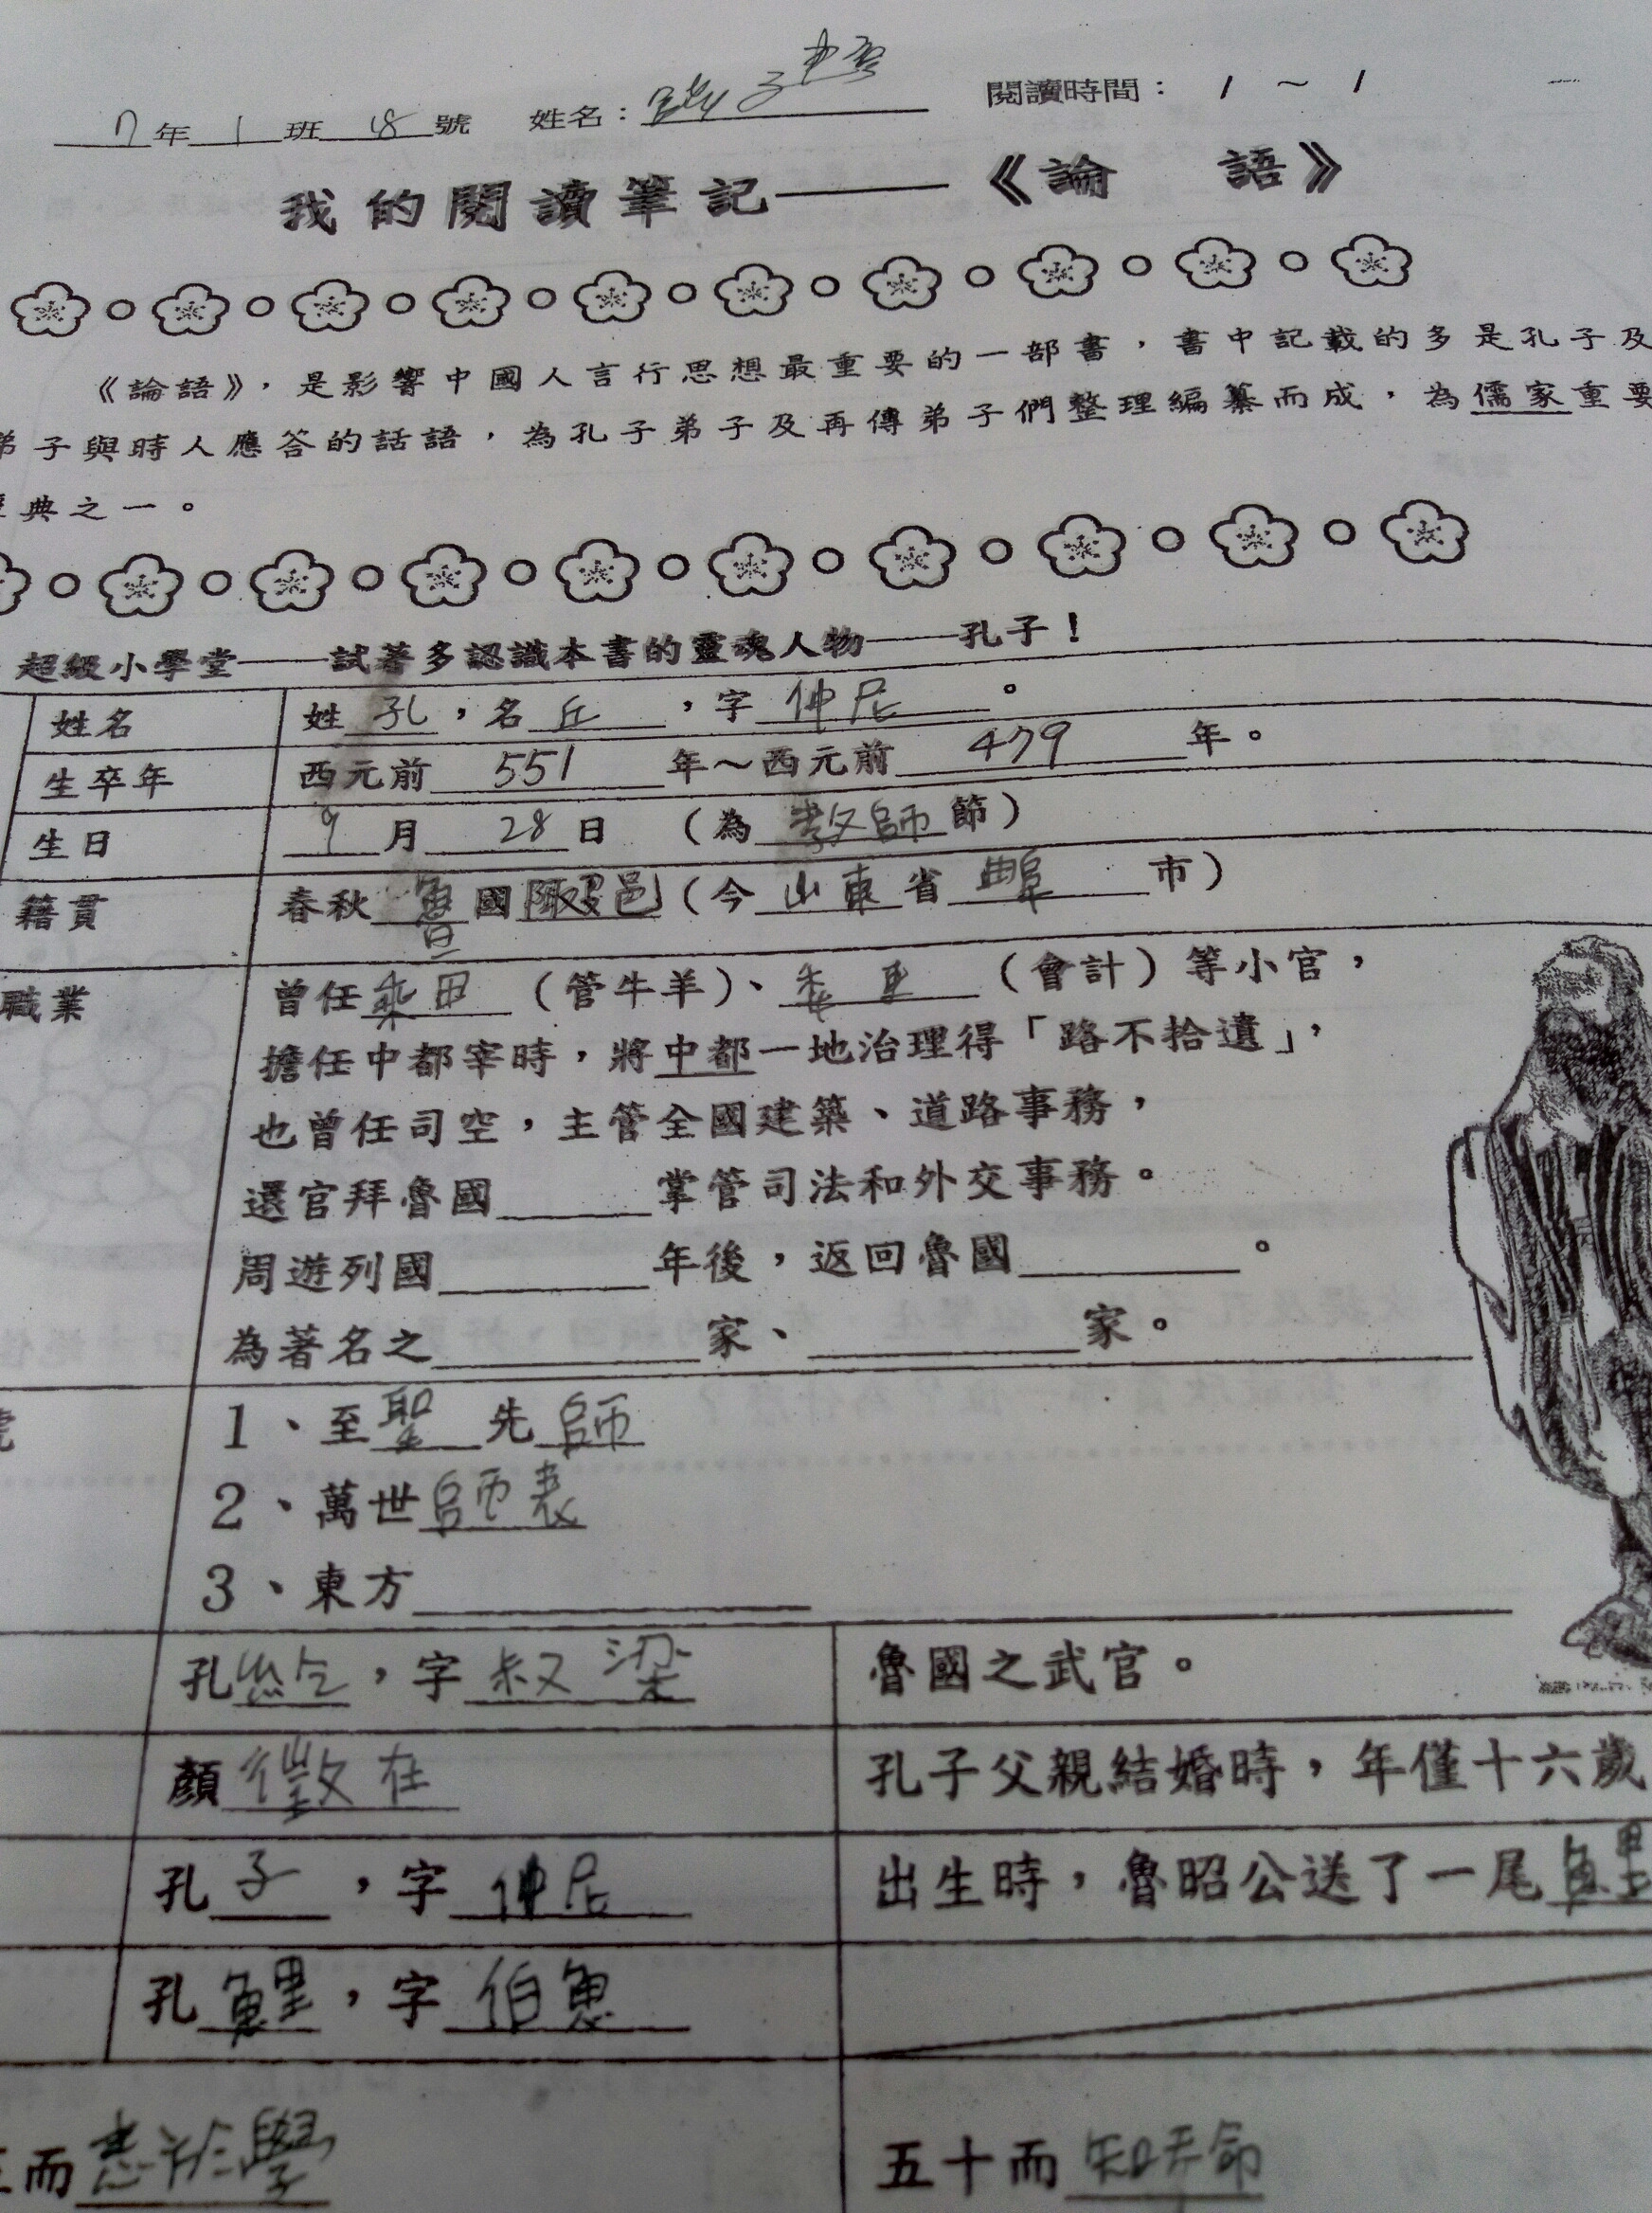 7年1班18號 姓名： 閱讀時間：1～1
我的閱讀筆記——《論 語》
《論語》，是影響中國人言行思想最重要的一部書，書中記載的多是孔子及
弟子與時人應答的話語，為孔子弟子及再傳弟子們整理編纂而成，為儒家重要
經典之一。
超級小學堂——試著多認識本書的靈魂人物——孔子！
姓名 姓孔，名丘，字仲尼。
生卒年 西元前551年～西元前479年。
生日 9月28日（為教師節）
籍貫 春秋魯國陬邑（今山東省曲阜市）
職業 曾任乘田（管牛羊）、委吏（會計）等小官，
擔任中都宰時，將中都一地治理得「路不拾遺」，
也曾任司空，主管全國建築、道路事務，
還官拜魯國______掌管司法和外交事務。
周遊列國______年後，返回魯國______。
為著名之______家、______家。
號 1、至聖先師
2、萬世師表
3、東方______
孔紇，字叔梁 魯國之武官。
顏徵在 孔子父親結婚時，年僅十六歲
孔子，字仲尼 出生時，魯昭公送了一尾鯉
孔鯉，字伯魚
而志於學 五十而知天命